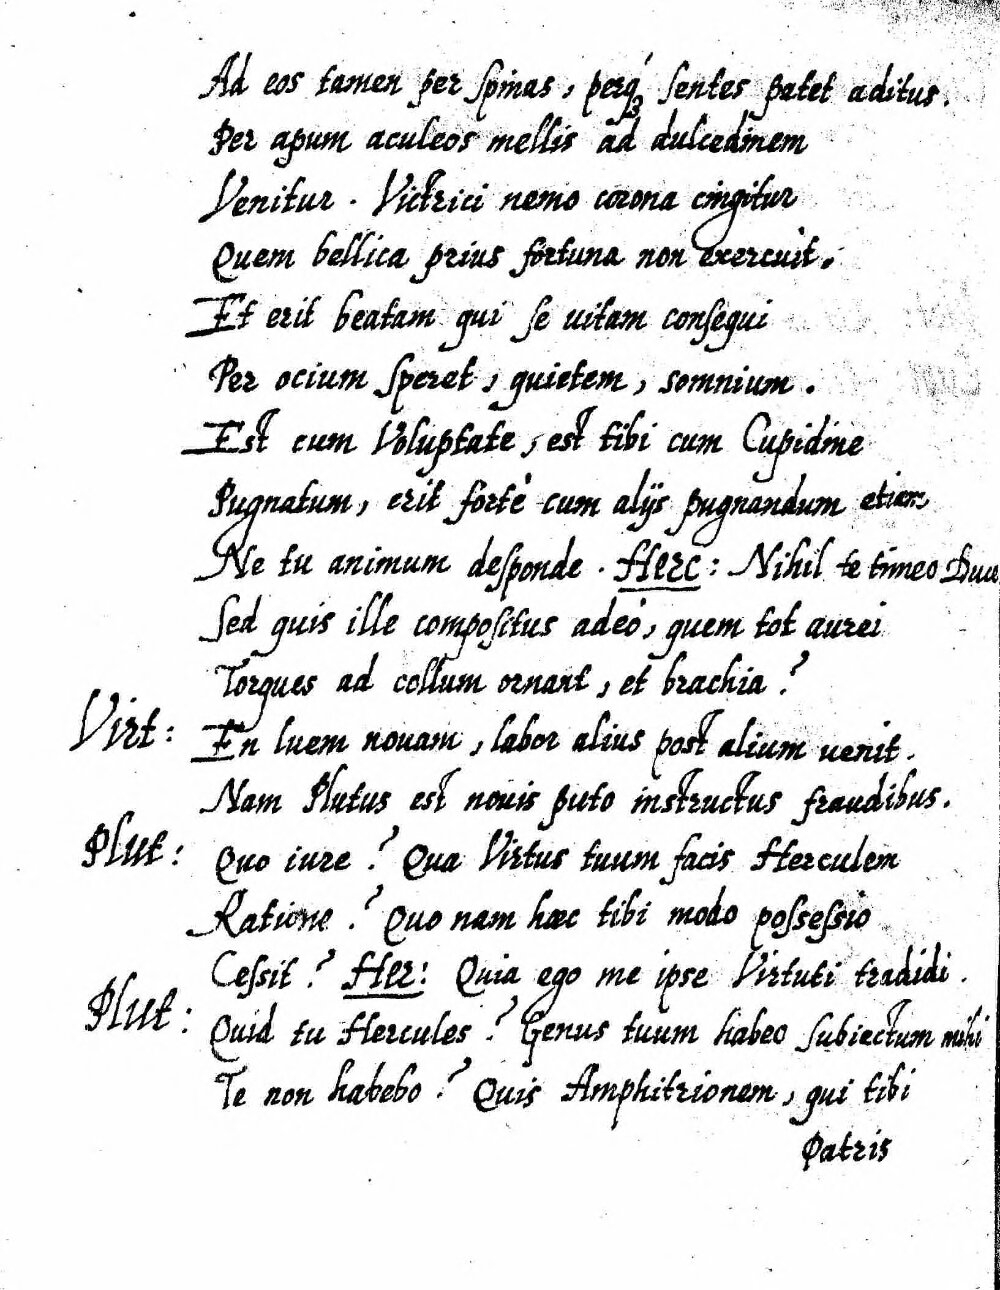 Ad eos tamen per spinas, perq́ꝫ sentes patet aditus.
Per apum aculeos mellis ad dulcedinem
Venitur. Victrici nemo corona cingitur
Quem bellica prius fortuna non exercuit.
Et erit beatam qui se uitam consequi
Per ocium speret, quietem, somnium.
Est cum Voluptate, est tibi cum Cupidine
Pugnatum, erit fortè cum alijs pugnandum etiam
Ne tu animum desponde. Herc: Nihil te timeo Duce
Sed quis ille compositus adeò, quem tot aurei
Torques ad collum ornant, et brachia?
Virt: En luem nouam, labor alius post alium uenit.
Nam Plutus est nouis puto instructus fraudibus.
Plut: Quo iure? Qua Virtus tuum facis Herculem
Ratione? Quo nam hæc tibi modo possessio
Cessit? Her: Quia ego me ipse Virtuti tradidi.
Plut: Quid tu Hercules? Genus tuum habeo subiectum mihi
Te non habebo? Quis Amphitrionem, qui tibi
Patris